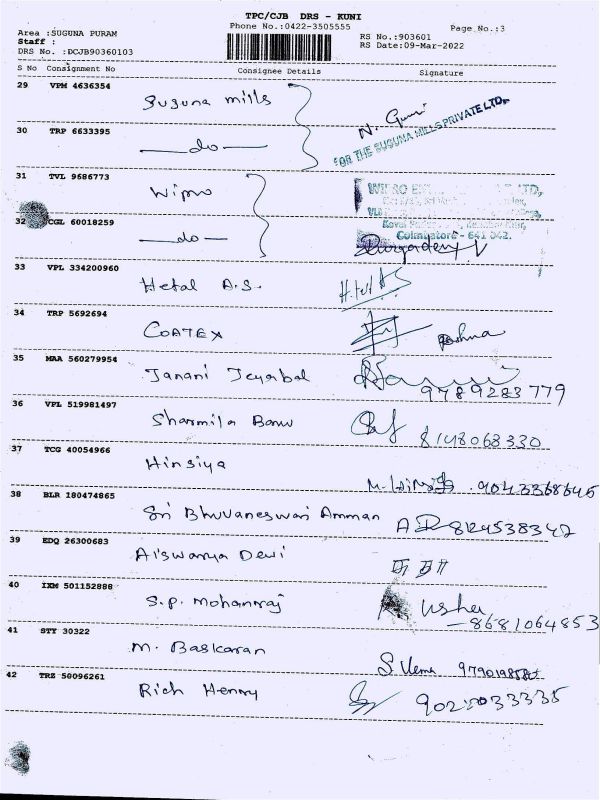 TPC/CJB DRS - KUNI
Phone No.:0422-3505555 Page No.:3
Area :SUGUNA PURAM RS No.:903601
Staff : RS Date:09-Mar-2022
DRS No. :DCJB90360103
S No Consignment No Consignee Details Signature
29 VPM 4636354 Suguna mills
N. Guni
FOR THE SUGUNA MILLS PRIVATE LTD.,
30 TRP 6633395 —do—
31 TVL 9686773 Wipro
LTD,
32 CGL 60018259 —do—
Coimbatore - 641 042.
33 VPL 334200960 Hetal A.S.
34 TRP 5692694 COATEX
35 MAA 560279954 Janani Jeyabal
9789283779
36 VPL 519981497 Sharmila Banu 8148068330
37 TCG 40054966 Hinsiya
38 BLR 180474865 Sri Bhuvaneswari Amman
39 EDQ 26300683 Aiswarya Devi
40 IXM 501152886 S.P. Mohanraj Usha
-8681064853
41 STY 30322 M. Baskaran
42 TRZ 50096261 Rich Henny